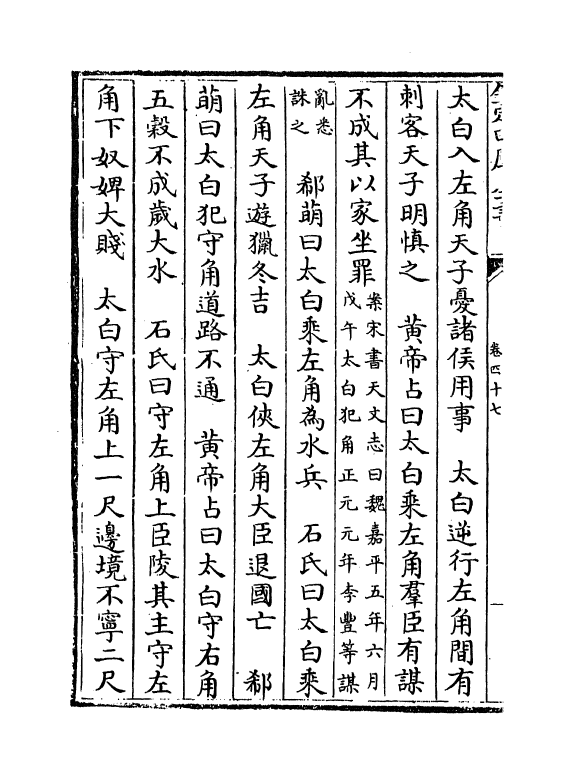 太白入左角天子憂諸侯用事　太白逆行左角間有
刺客天子明慎之　黄帝占曰太白乘左角羣臣有謀
不成其以家坐罪案宋書天文志曰魏嘉平五年六月
戊午太白犯角正元元年李豐等謀
亂悉
誅之　郗萌曰太白乘左角為水兵　石氏曰太白乘
左角天子遊獵冬吉　太白俠左角大臣退國亡　郗
萌曰太白犯守角道路不通　黄帝占曰太白守右角
五穀不成歲大水　石氏曰守左角上臣陵其主守左
角下奴婢大賤　太白守左角上一尺邊境不寧二尺
卷四十七
一